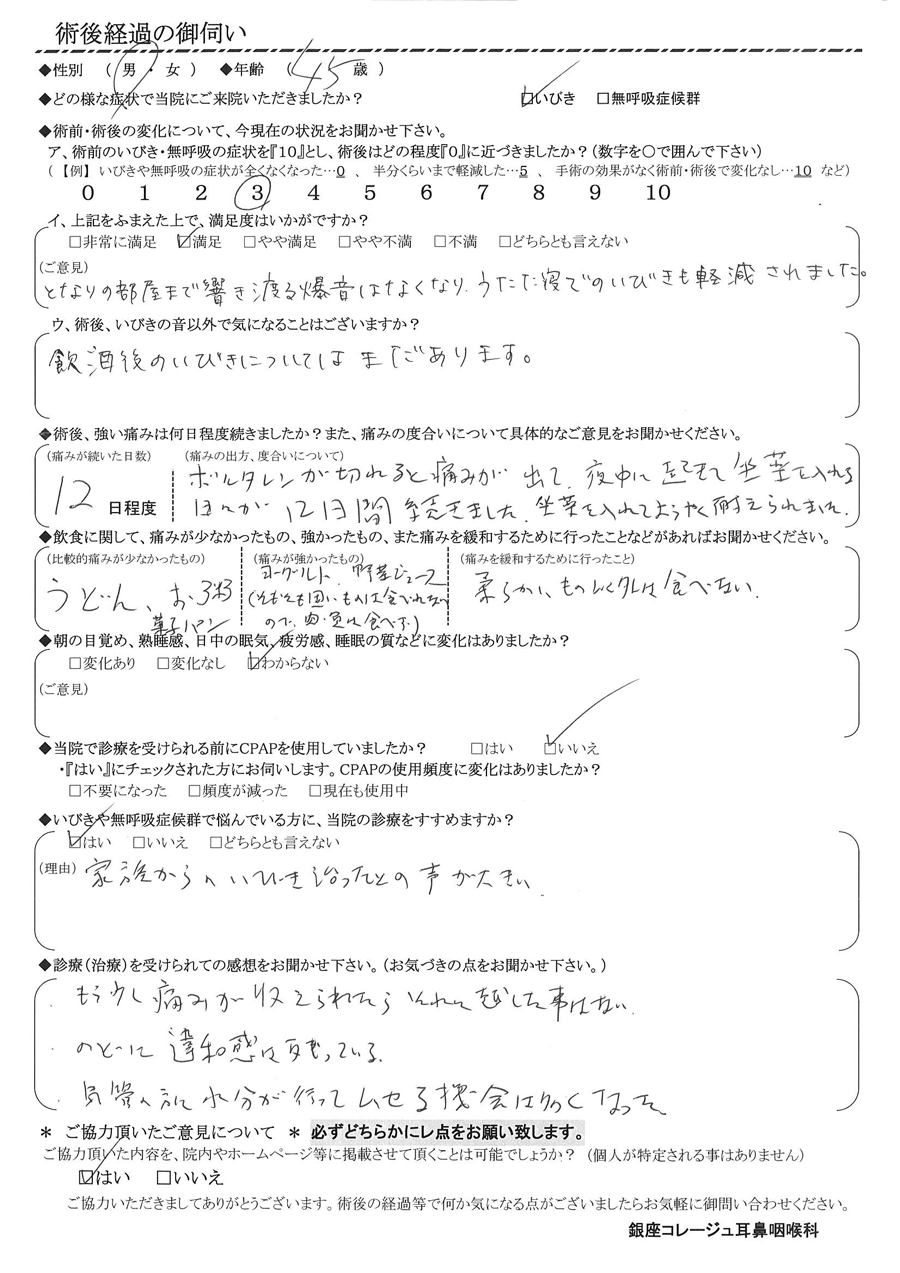 術後経過の御伺い
◆性別 ( 男 ・ 女 ) ◆年齢 ( 45 歳 )
◆どの様な症状で当院にご来院いただきましたか? ☑いびき □無呼吸症候群
◆術前・術後の変化について、今現在の状況をお聞かせ下さい。
ア、術前のいびき・無呼吸の症状を『10』とし、術後はどの程度『0』に近づきましたか?(数字を○で囲んで下さい)
(【例】 いびきや無呼吸の症状が全くなくなった…0 、 半分くらいまで軽減した…5 、 手術の効果がなく術前・術後で変化なし…10 など)
0 1 2 3 4 5 6 7 8 9 10
イ、上記をふまえた上で、満足度はいかがですか?
□非常に満足 ☑満足 □やや満足 □やや不満 □不満 □どちらとも言えない
(ご意見)
となりの部屋まで響き渡る爆音はなくなり、うたた寝でのいびきも軽減されました。
ウ、術後、いびきの音以外で気になることはございますか?
飲酒後のいびきについてはまだあります。
◆術後、強い痛みは何日程度続きましたか?また、痛みの度合いについて具体的なご意見をお聞かせください。
(痛みが続いた日数) (痛みの出方、度合いについて)
12 日程度
ボルタレンが切れると痛みが出て、夜中に起きて坐薬を入れる
日々が12日間続きました。坐薬を入れてようやく耐えられました。
◆飲食に関して、痛みが少なかったもの、強かったもの、また痛みを緩和するために行ったことなどがあればお聞かせください。
(比較的痛みが少なかったもの) (痛みが強かったもの) (痛みを緩和するために行ったこと)
うどん、お粥
菓子パン
ヨーグルト、野菜ジュース
(そもそも固いものは食べれない
ので、肉・魚は食べず)
柔らかいもの以外は食べない。
◆朝の目覚め、熟睡感、日中の眠気、疲労感、睡眠の質などに変化はありましたか?
□変化あり □変化なし ☑わからない
(ご意見)
◆当院で診療を受けられる前にCPAPを使用していましたか? □はい ☑いいえ
・『はい』にチェックされた方にお伺いします。CPAPの使用頻度に変化はありましたか?
□不要になった □頻度が減った □現在も使用中
◆いびきや無呼吸症候群で悩んでいる方に、当院の診療をすすめますか?
☑はい □いいえ □どちらとも言えない
(理由) 家族からのいびき治ったとの声が大きい。
◆診療(治療)を受けられての感想をお聞かせ下さい。(お気づきの点をお聞かせ下さい。)
・もう少し痛みが収えられたらそれに越した事はない。
・のどに違和感は残っている。
・気管の方に水分が行ってムせる機会は多くなった
＊ ご協力頂いたご意見について ＊ 必ずどちらかにレ点をお願い致します。
ご協力頂いた内容を、院内やホームページ等に掲載させて頂くことは可能でしょうか? (個人が特定される事はありません)
☑はい □いいえ
ご協力いただきましてありがとうございます。術後の経過等で何か気になる点がございましたらお気軽に御問い合わせください。
銀座コレージュ耳鼻咽喉科